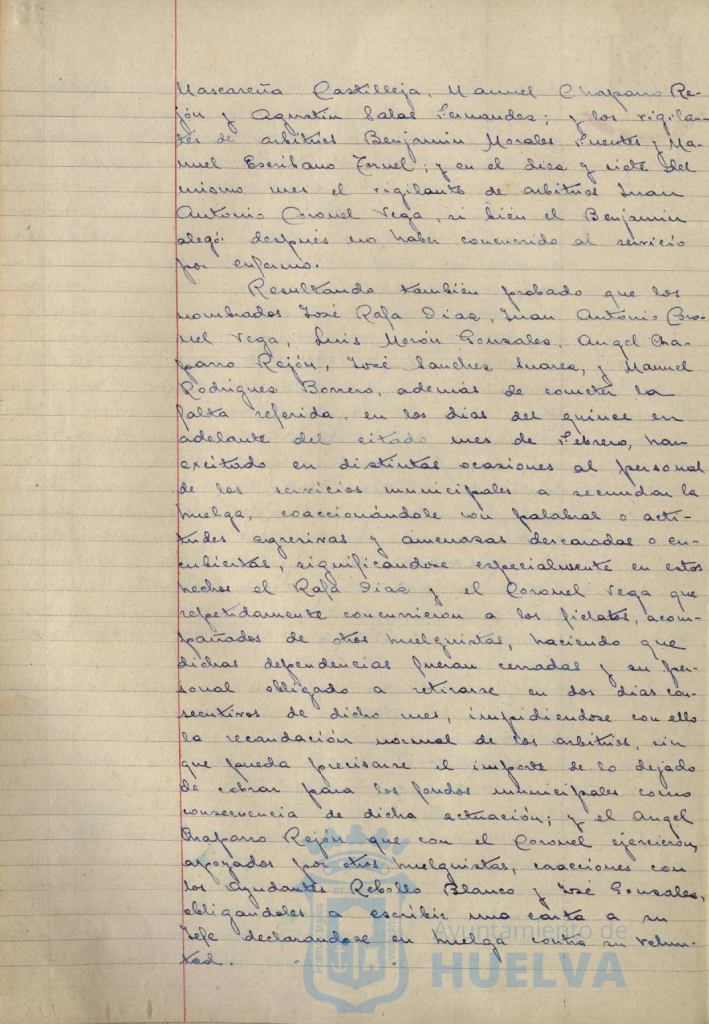 Mascareña Castilleja, Manuel Chaparro Re-
jón y Agustin Salas Fernandez; y los vigilan-
tes de arbitrios Benjamin Morales Fuentes y Ma-
nuel Escribano Tornel; y en el diez y siete del
mismo mes el vigilante de arbitrios Juan
Antonio Coronel Vega, si bién el Benjamin
alegó después no haber concurrido al servicio
por enfermo.
Resultando también probado que los
nombrados José Rafa Diaz, Juan Antonio Coro-
nel Vega, Luis Morón Gonzales, Angel Cha-
parro Rejón, José Sanchez Suarez, y Manuel
Rodrigues Borrero, además de cometer la
falta referida, en los dias del quince en
adelante del citado mes de Febrero, han
excitado en distintas ocasiones al personal
de los servicios municipales a secundar la
huelga, coaccionándole con palabras o acti-
tudes agresivas y amenazas descaradas o en-
cubiertas, significandose especialmente en estos
hechos el Rafa Diaz y el Coronel Vega que
repetidamente concurrieron a los fielatos, acom-
pañados de otros huelguistas, haciendo que
dichas dependencias fueran cerradas y su per-
sonal obligado a retirarse en dos dias con-
secutivos de dicho mes, impidiendose con ello
la recaudación normal de los arbitrios, sin
que pueda precisarse el importe de lo dejado
de cobrar para los fondos municipales como
consecuencia de dicha actuación; y el Angel
Chaparro Rejón que con el Coronel ejercieron,
apoyados por otros huelguistas, coacciones con
los Ayudantes Rebollo Blanco y José Gonzales,
obligandoles a escribir una carta a su
Jefe declarandose en huelga contra su volun-
tad.
Ayuntamiento de
HUELVA